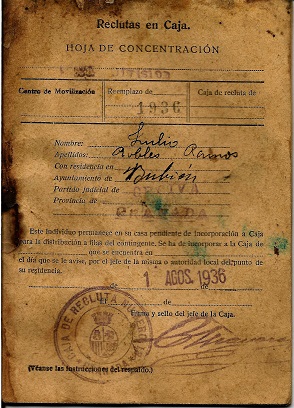 Reclutas en Caja.
HOJA DE CONCENTRACIÓN
Centro de Movilización
Reemplazo de
1936
Caja de recluta de
Nombre: Julio
Apellidos: Robles Ramos
Con residencia en
Ayuntamiento de
Partido judicial de
Provincia de GRANADA
Este individuo permanece en su casa pendiente de incorporación a Caja
para la distribución a filas del contingente. Se ha de incorporar a la Caja de
que se encuentra en
el día que se le avise, por el jefe de la misma o autoridad local del punto de
su residencia.
1 AGOS. 1936
de de
Firma y sello del jefe de la Caja.
CAJA DE RECLUTA
(Véanse las instrucciones del respaldo.)